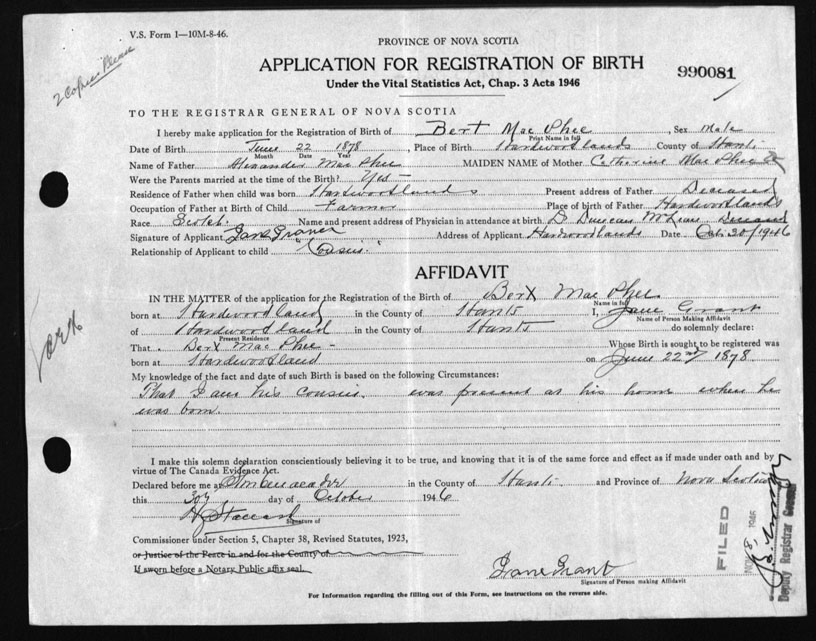 V.S. Form 1—10M-8-46.
2 Copies Please
PROVINCE OF NOVA SCOTIA
APPLICATION FOR REGISTRATION OF BIRTH
990081
Under the Vital Statistics Act, Chap. 3 Acts 1946
TO THE REGISTRAR GENERAL OF NOVA SCOTIA
I hereby make application for the Registration of Birth of Bert Mac Phee, Sex Male
Print Name in full
Date of Birth June 22 1878, Place of Birth Hardwoodlands County of Hants
Month Date Year
Name of Father Alexander Mac Phee MAIDEN NAME of Mother Catherine Mac Phee
Were the Parents married at the time of the Birth? Yes —
Residence of Father when child was born Hardwoodlands Present address of Father Deceased
Occupation of Father at Birth of Child Farmer Place of birth of Father Hardwoodlands
Race Scotch. Name and present address of Physician in attendance at birth D. Duncan McLean Deceased
Signature of Applicant Jane Address of Applicant Hardwoodlands Date Oct 30/1946
Relationship of Applicant to child "Cousin."
AFFIDAVIT
IN THE MATTER of the application for the Registration of the Birth of Bert Mac Phee
Name in full
born at Hardwoodland in the County of Hants I, Jane Grant
Name of Person Making Affidavit
of Hardwoodland in the County of Hants do solemnly declare:
Present Residence
That Bert Mac Phee — Whose Birth is sought to be registered was
born at Hardwoodland on June 22nd 1878
My knowledge of the fact and date of such Birth is based on the following Circumstances:
That I am his cousin. was present at his home when he
was born.
I make this solemn declaration conscientiously believing it to be true, and knowing that it is of the same force and effect as if made under oath and by
virtue of The Canada Evidence Act.
Declared before me at in the County of Hants and Province of Nova Scotia
this 30 day of October 1946
Signature of
Commissioner under Section 5, Chapter 38, Revised Statutes, 1923,
or Justice of the Peace in and for the County of
If sworn before a Notary Public affix seal.
Jane Grant
Signature of Person making Affidavit
FILED
NOV 8, 1946
Deputy Registrar General
For Information regarding the filling out of this Form, see instructions on the reverse side.